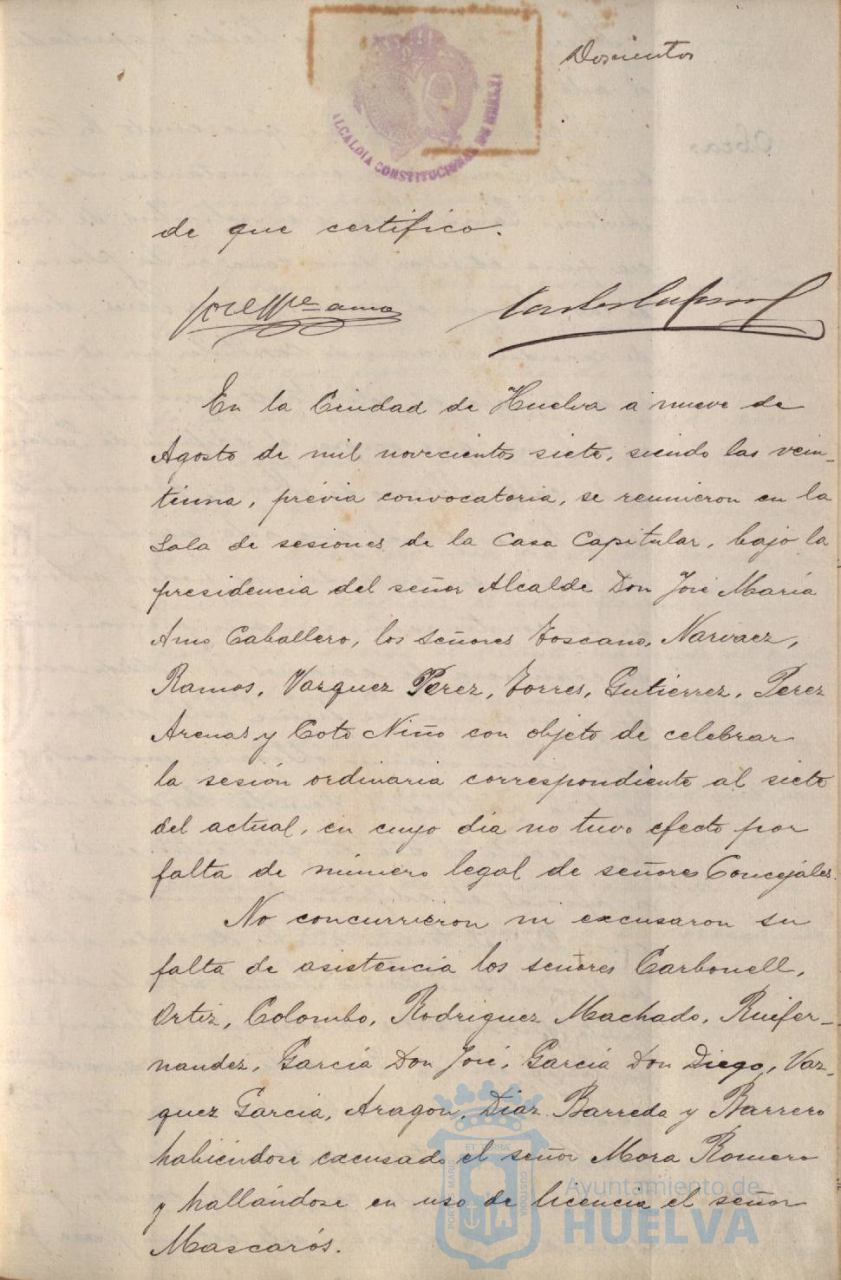 Doscientos
ALCALDIA CONSTITUCIONAL DE HUELVA
de que certifico.
En la Ciudad de Huelva á nueve de
Agosto de mil novecientos siete, siendo las vein-
tiuna, prévia convocatoria, se reunieron en la
Sala de sesiones de la Casa Capitular, bajo la
presidencia del señor Alcalde Don José María
Amo Caballero, los señores Toscano, Narvaez,
Ramos, Vazquez Perez, Torres, Gutierrez, Perez
Arenas y Coto Niño con objeto de celebrar
la sesión ordinaria correspondiente al siete
del actual, en cuyo dia no tuvo efecto por
falta de número legal de señores Concejales.
No concurrieron ni excusaron su
falta de asistencia los señores Carbonell,
Ortiz, Colombo, Rodriguez Machado, Ruifer-
nandez, García Don José, García Don Diego, Vaz-
quez García, Aragón, Diaz Barreda y Barrero
habiéndose excusado el señor Mora Romero
y hallándose en uso de licencia el señor
Mascarós.
Ayuntamiento de
HUELVA